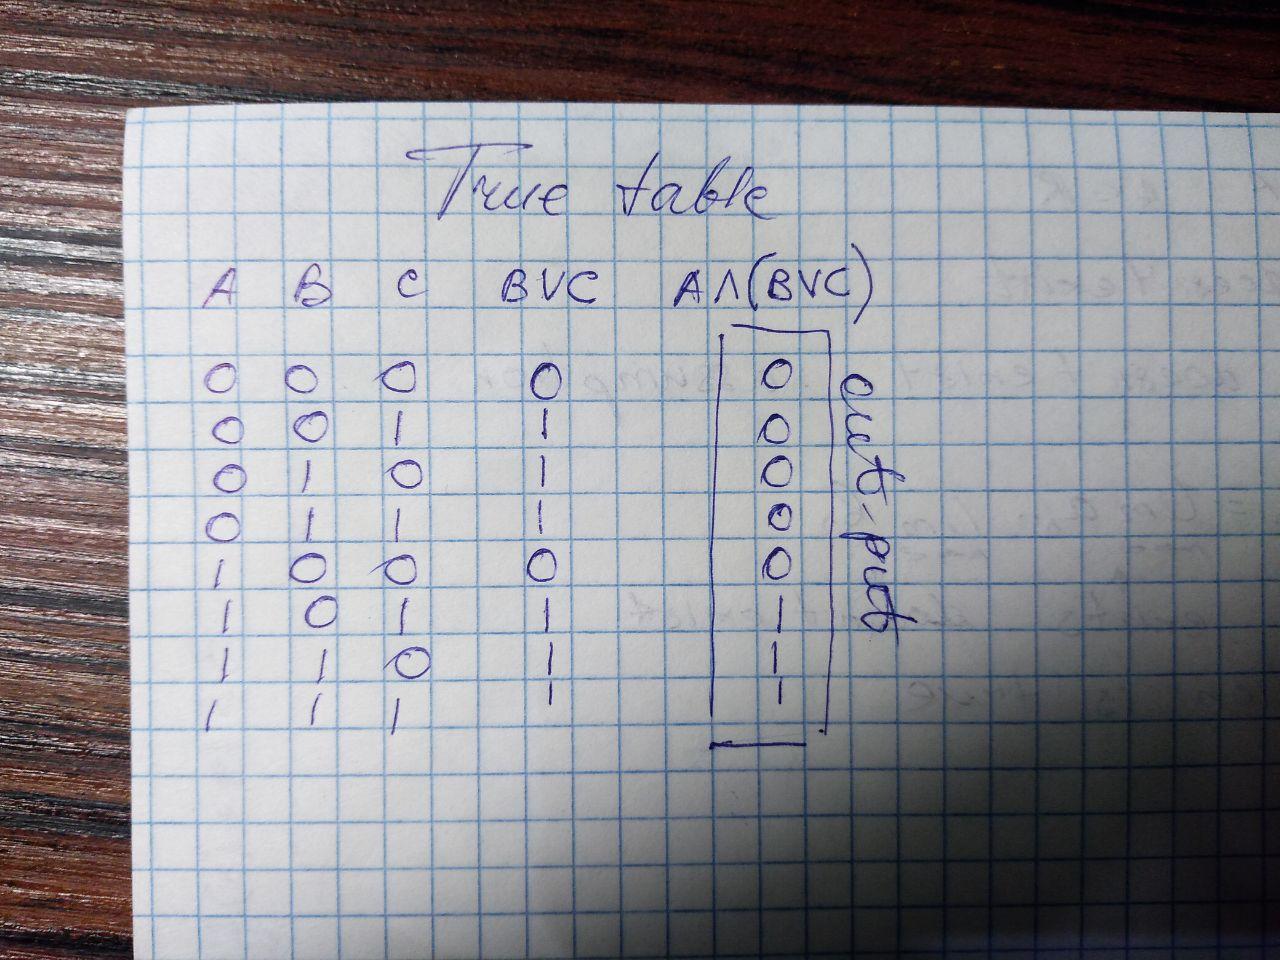 True table
A B C B V C A Λ (B V C)
0 0 0 0 0
0 0 1 1 0
0 1 0 1 0
0 1 1 1 0
1 0 0 0 0
1 0 1 1 1
1 1 0 1 1
1 1 1 1 1
out-put